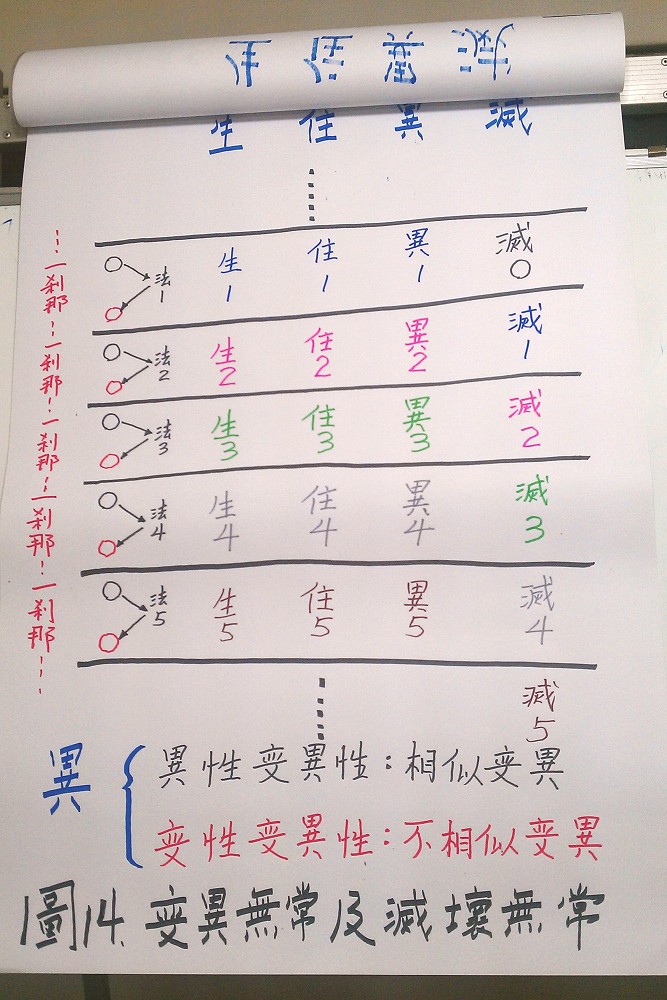 生 住 異 滅
生 住 異 滅
一刹那 法1 生1 住1 異1 滅0
一刹那 法2 生2 住2 異2 滅1
一刹那 法3 生3 住3 異3 滅2
一刹那 法4 生4 住4 異4 滅3
一刹那 法5 生5 住5 異5 滅4
滅5
異
異性变異性:相似变異
变性变異性:不相似变異
圖14. 变異無常及滅壞無常